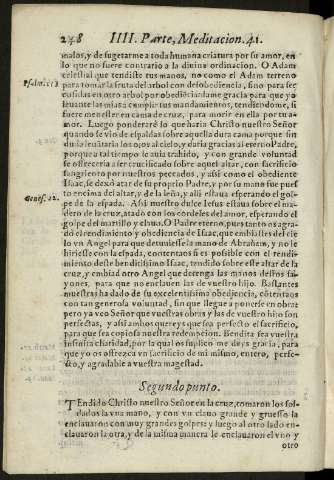 248 IIII. Parte, Meditacion. 41.
malos, y de sugetarme a toda humana criatura por su amor, en
lo que no fuere contrario a la diuina ordinacion. O Adam
celestial que tendiste tus manos, no como el Adam terreno
para tomar la fruta del arbol con desobediencia, sino para ser
cosidas en otro arbol por obediencia dame gracia para que yo
leuante las mias a cumplir tus mandamientos, tendiendome, si
fuere menester en cama de cruz, para morir en ella por tu a-
mor. Luego ponderarè lo que haria Christo nuestro Señor
quando se vio de espaldas sobre aquella dura cama porque sin
duda leuãtaria los ojos al cielo, y daria gracias al eterno Padre,
porque a tal tiempo le auia trahido, y con grande voluntad
se ofreceria a ser crucificado sobre aquel altar, con sacrificio
sangriento por nuestros peccados, y assi como el obediente
Isaac, se dexò atar de su proprio Padre, y por su mano fue pues
to encima del altar, y de la leña, y alli estaua esperando el gol-
pe de la espada. Assi nuestro dulce Iesus estaua sobre el ma-
dero de la cruz, atado con los cordeles del amor, esperando el
golpe del martillo y clauo. O Padre eterno, pues tanto os agra-
dò el rendimiento y obediencia de Isaac, que embiastes del cie
lo vn Angel para que detuuiesse la mano de Abraham, y no le
hiriesse con la espada, contentaos si es possible con el rendi-
miento deste benditissimo Isaac, tendido sobre este altar de la
cruz, y embiad otro Angel que detenga las manos destos sa-
yones, para que no enclauen las de vuestro hijo. Bastantes
muestras ha dado de su excelentissima obediencia, ofreciẽdoos
con tan generosa voluntad, sin que llegue a ponerse en obra:
pero ya veo Señor que vuestras obras y las de vuestro hijo son
perfectas, y assi ambos quereys que sea perfecto el sacrificio,
para que sea copiosa nuestra redempcion. Bendita sea vuestra
infinita charidad, por la qual os suplico me deys gracia, para
que yo os ofrezca vn sacrificio de mi mismo, entero, perfe-
cto, y agradable a vuestra magestad.
Segundo punto.
TEndido Christo nuestro Señor en la cruz, tomaron los sol-
dados la vna mano, y con vn clauo grande y gruesso la
enclauaron con muy grandes golpes: y luego al otro lado en-
clauaron la otra, y de la misma manera le enclauaron el vno y
otro